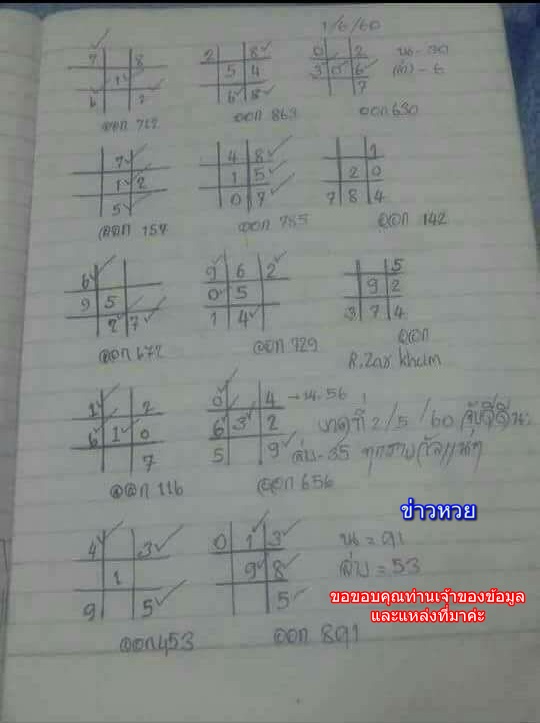 1/6/60
7 8
1
6 2
ออก 712
2 8
5 4
6 8
ออก 869
0 2
3 0 6
7
บน-30
ออก 630
7
1 2
5
ออก 157
4 8
1 5
0 7
ออก 785
1
2 0
7 8 4
ออก 142
6
9 5
2 7
ออก 672
9 6 2
0 5
1 4
ออก 729
5
9 2
3 7 4
ออก
1 2
6 1 0
7
ออก 116
0 4
6 3 2
5 9
ออก 656
→ บ. 56
งวดที่ 2/5/60
ล่าง-35
ข่าวหวย
4 3
1
9 5
ออก 453
0 1 3
9 8
5
ออก 891
บ = 91
ล่าง = 53
ขอขอบคุณท่านเจ้าของข้อมูล
และแหล่งที่มาค่ะ